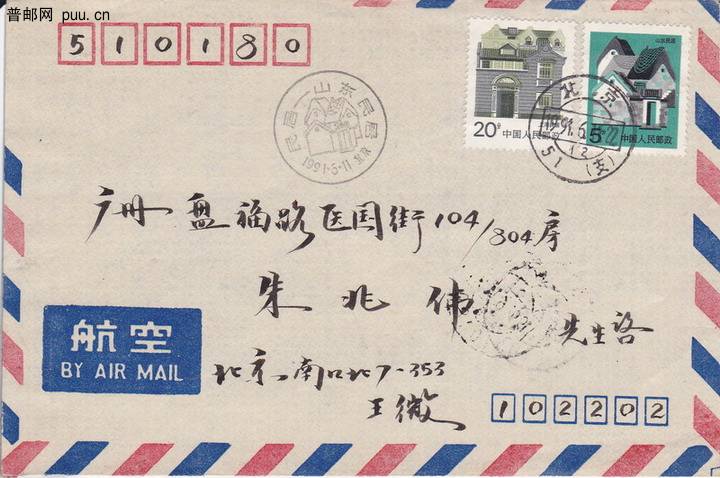 普邮网 puu.cn
510180
山东民居
20分
中国人民邮政
5分
中国人民邮政
民居—山东民居
1991·5·11 北京
北京
51(支)
广州 盘福路医国街104/804房
朱兆伟
先生启
航空
BY AIR MAIL
北京南口北7-353
王微
102202